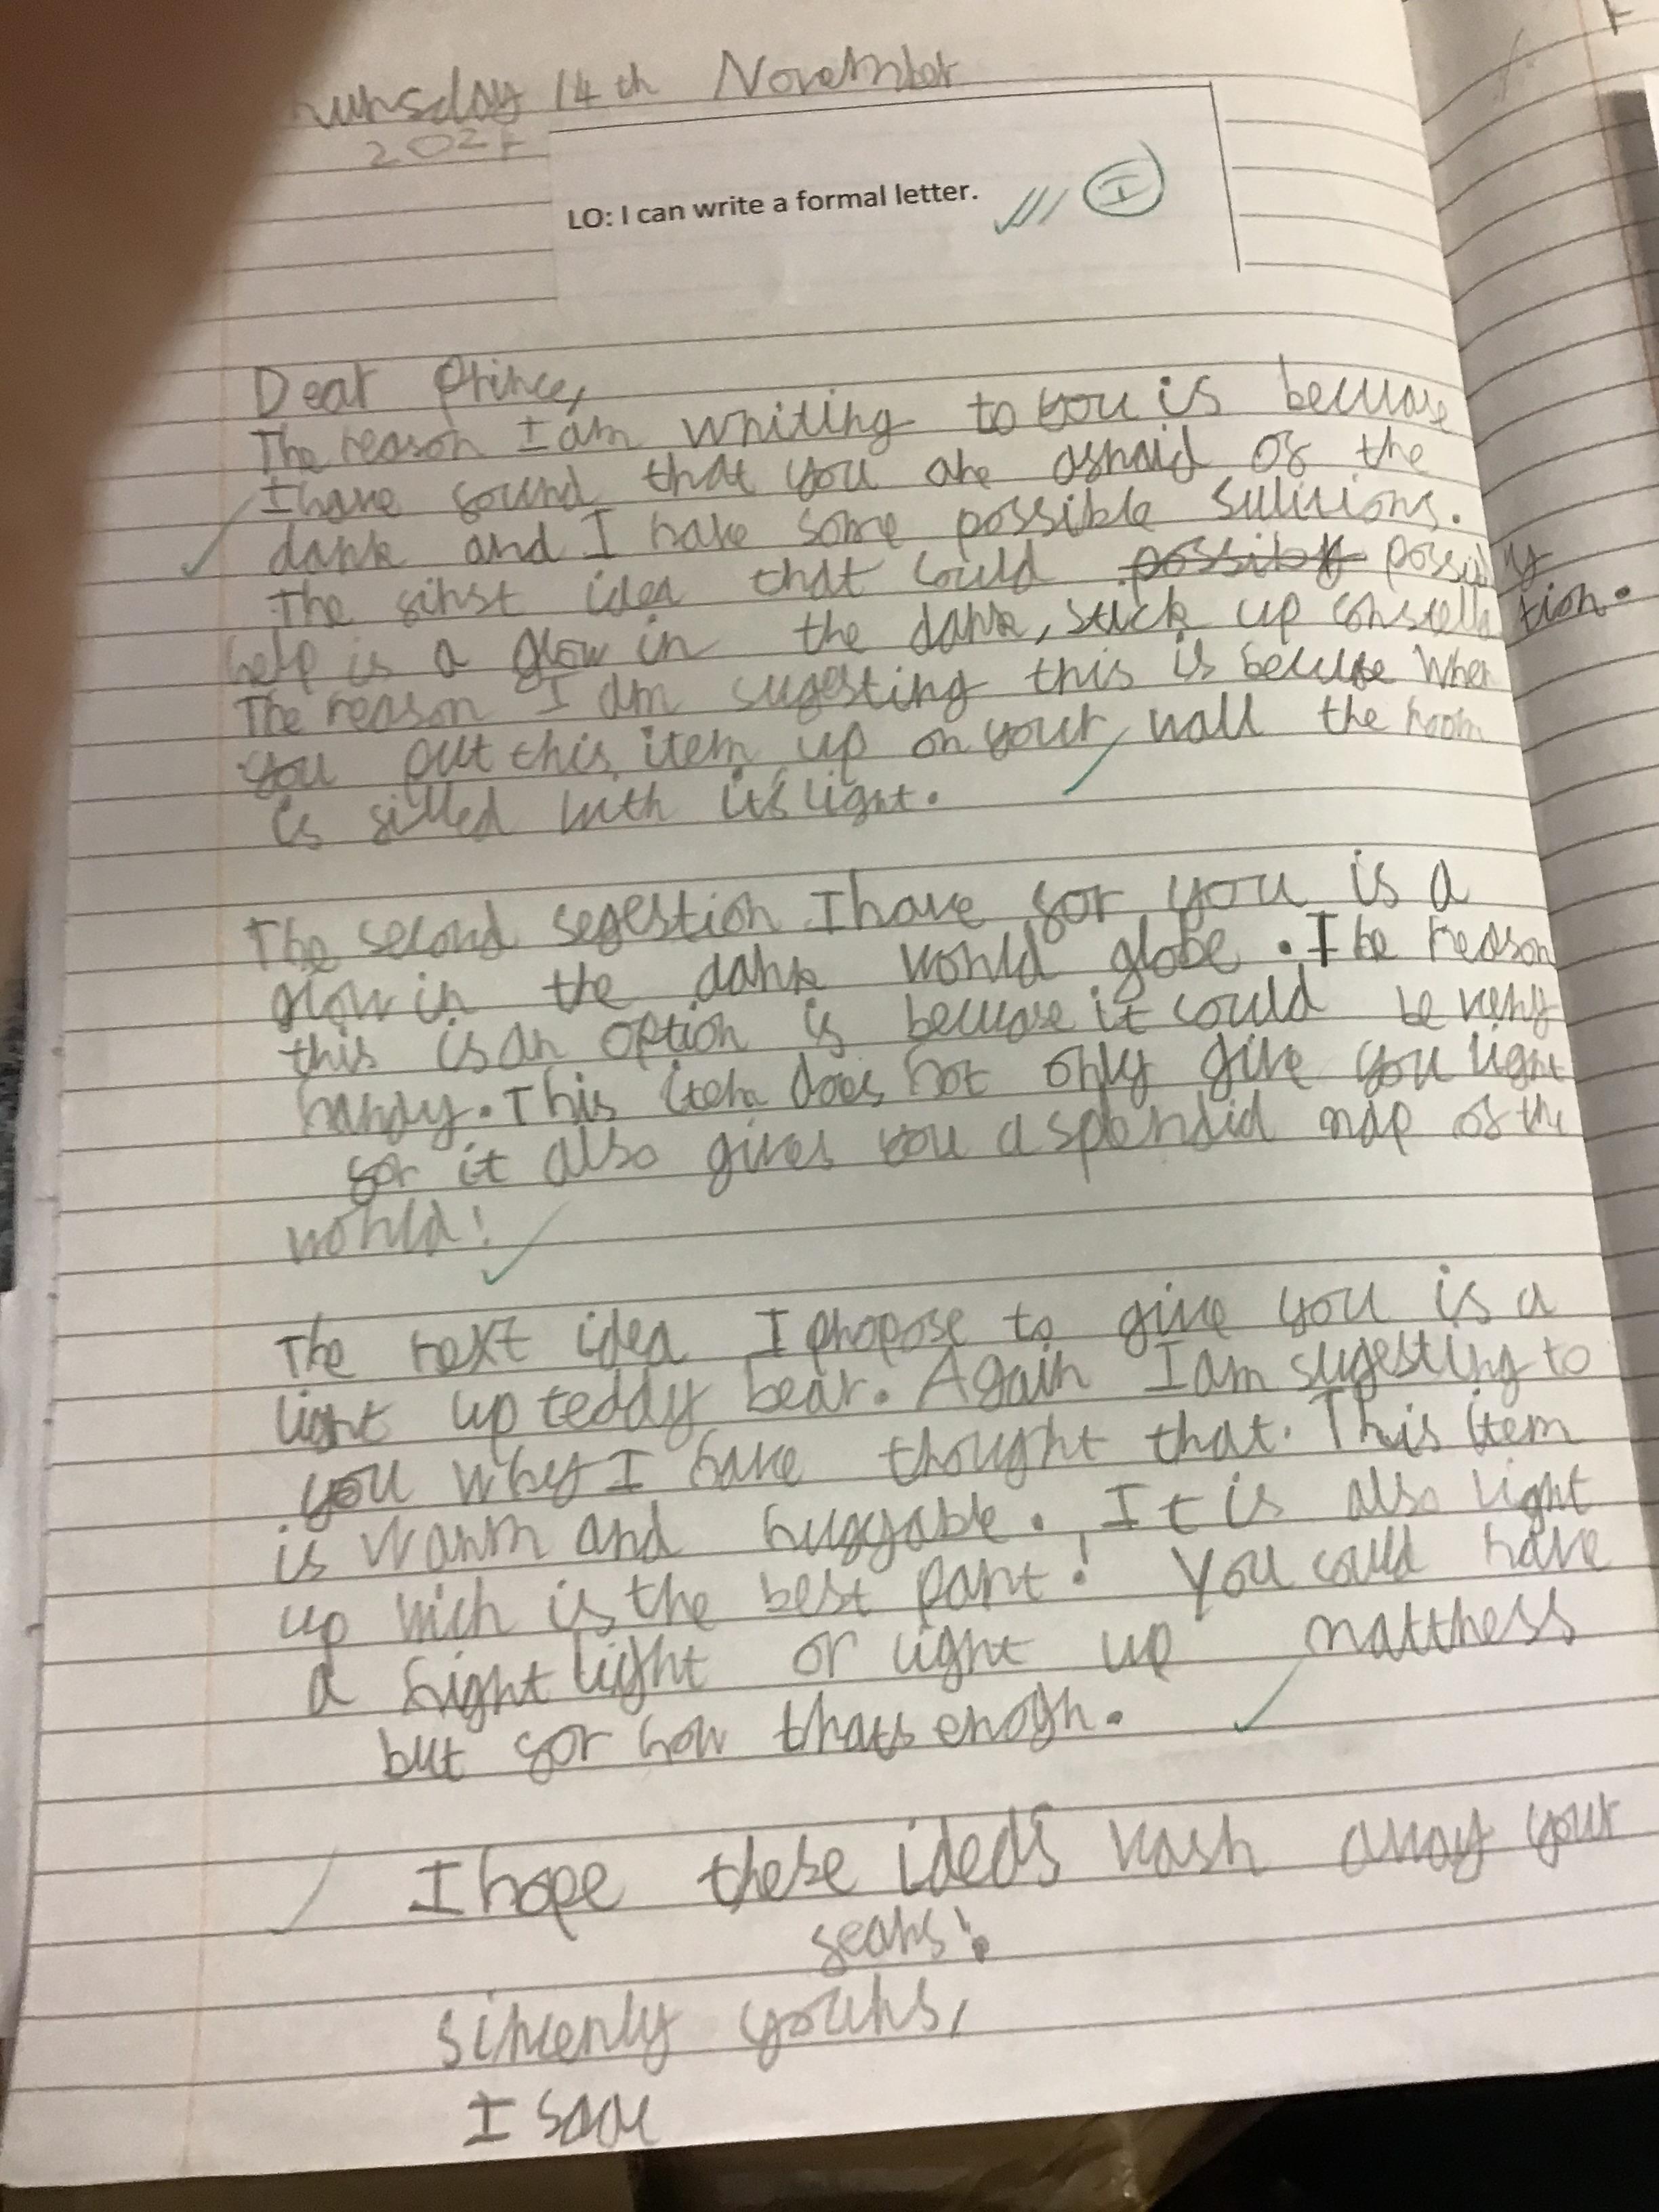 Thursday 14th November
2024
LO: I can write a formal letter.
I
Dear Prince,
The reason I am writing to you is becuase
I have found that you are afraid of the
dark and I have some possible
The first idea that could possibly possibly
help is a glow in the dark, stick up constellation.
The reason I am sugesting this is becuse when
you put this item up on your wall the room
is filled with it's light.
The second segestion I have for you is a
glow in the dark world globe. The reason
this is an option is becuase it could be very
handy. This item does not only give you light
for it also gives you a splendid map of the
world!
The next idea I propose to give you is a
light up teddy bear. Again I am sugesting to
you why I have thought that. This item
is warm and huggable. It is also light
up wich is the best part! You could have
a night light or light up mattress
but for now thats enogh.
I hope these idea's wash away your
fears!
sincerly yours,
Isaac